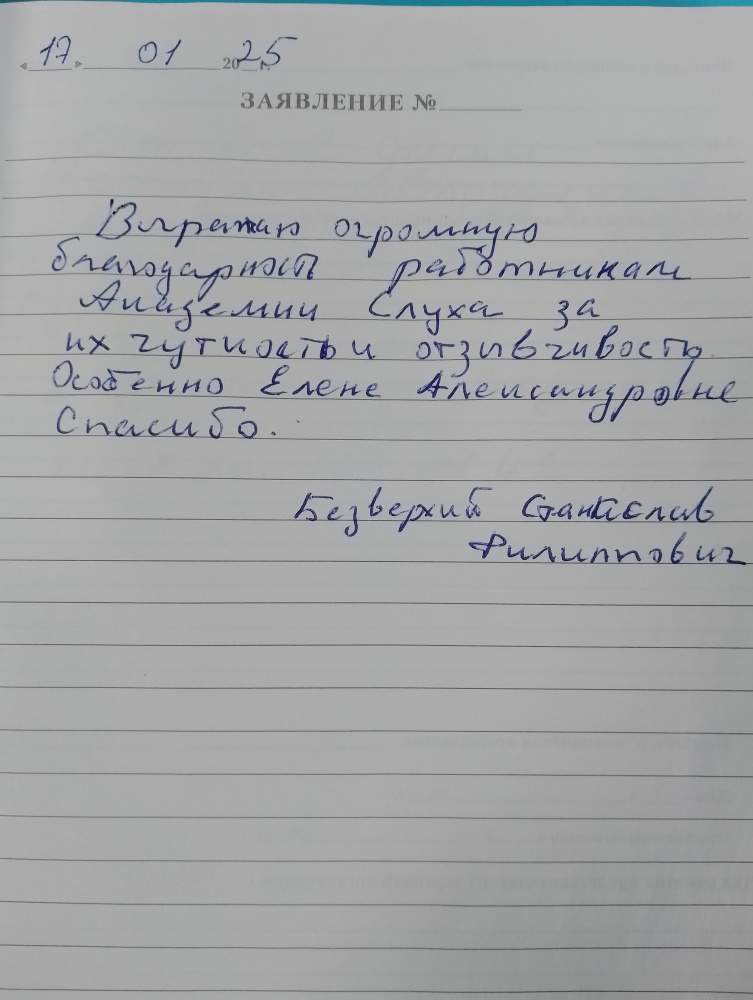 « 17 » 01 2025 г.
ЗАЯВЛЕНИЕ №
Выражаю огромную
благодарность работникам
Академии Слуха за
их чуткость и отзывчивость
Особенно Елене Александровне
Спасибо.
Безверхий Станислав
Филиппович